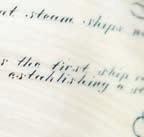 steam ships
s the first ship
establishing a s